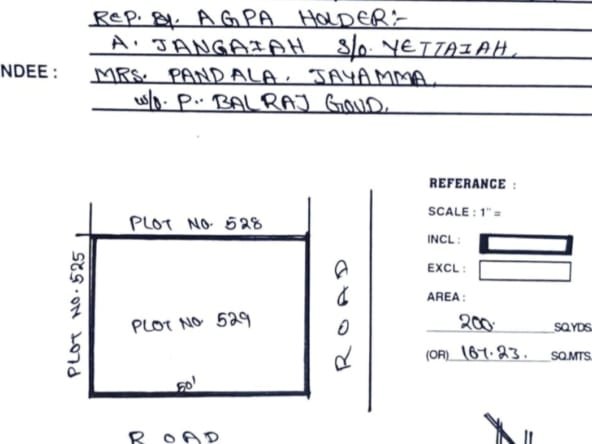 REP. By. AGPA HOLDER:-
A. JANGAIAH S/o. YETTAIAH.
NDEE : MRS. PANDALA. JAYAMMA.
w/o. P. BALRAJ GOUD.
REFERANCE :
SCALE : 1" =
INCL :
EXCL :
AREA :
200. SQ.YDS
(OR) 167.23. SQ.MTS.
PLOT NO. 528
PLOT NO. 525
PLOT NO 529
50'
ROAD
ROAD
N